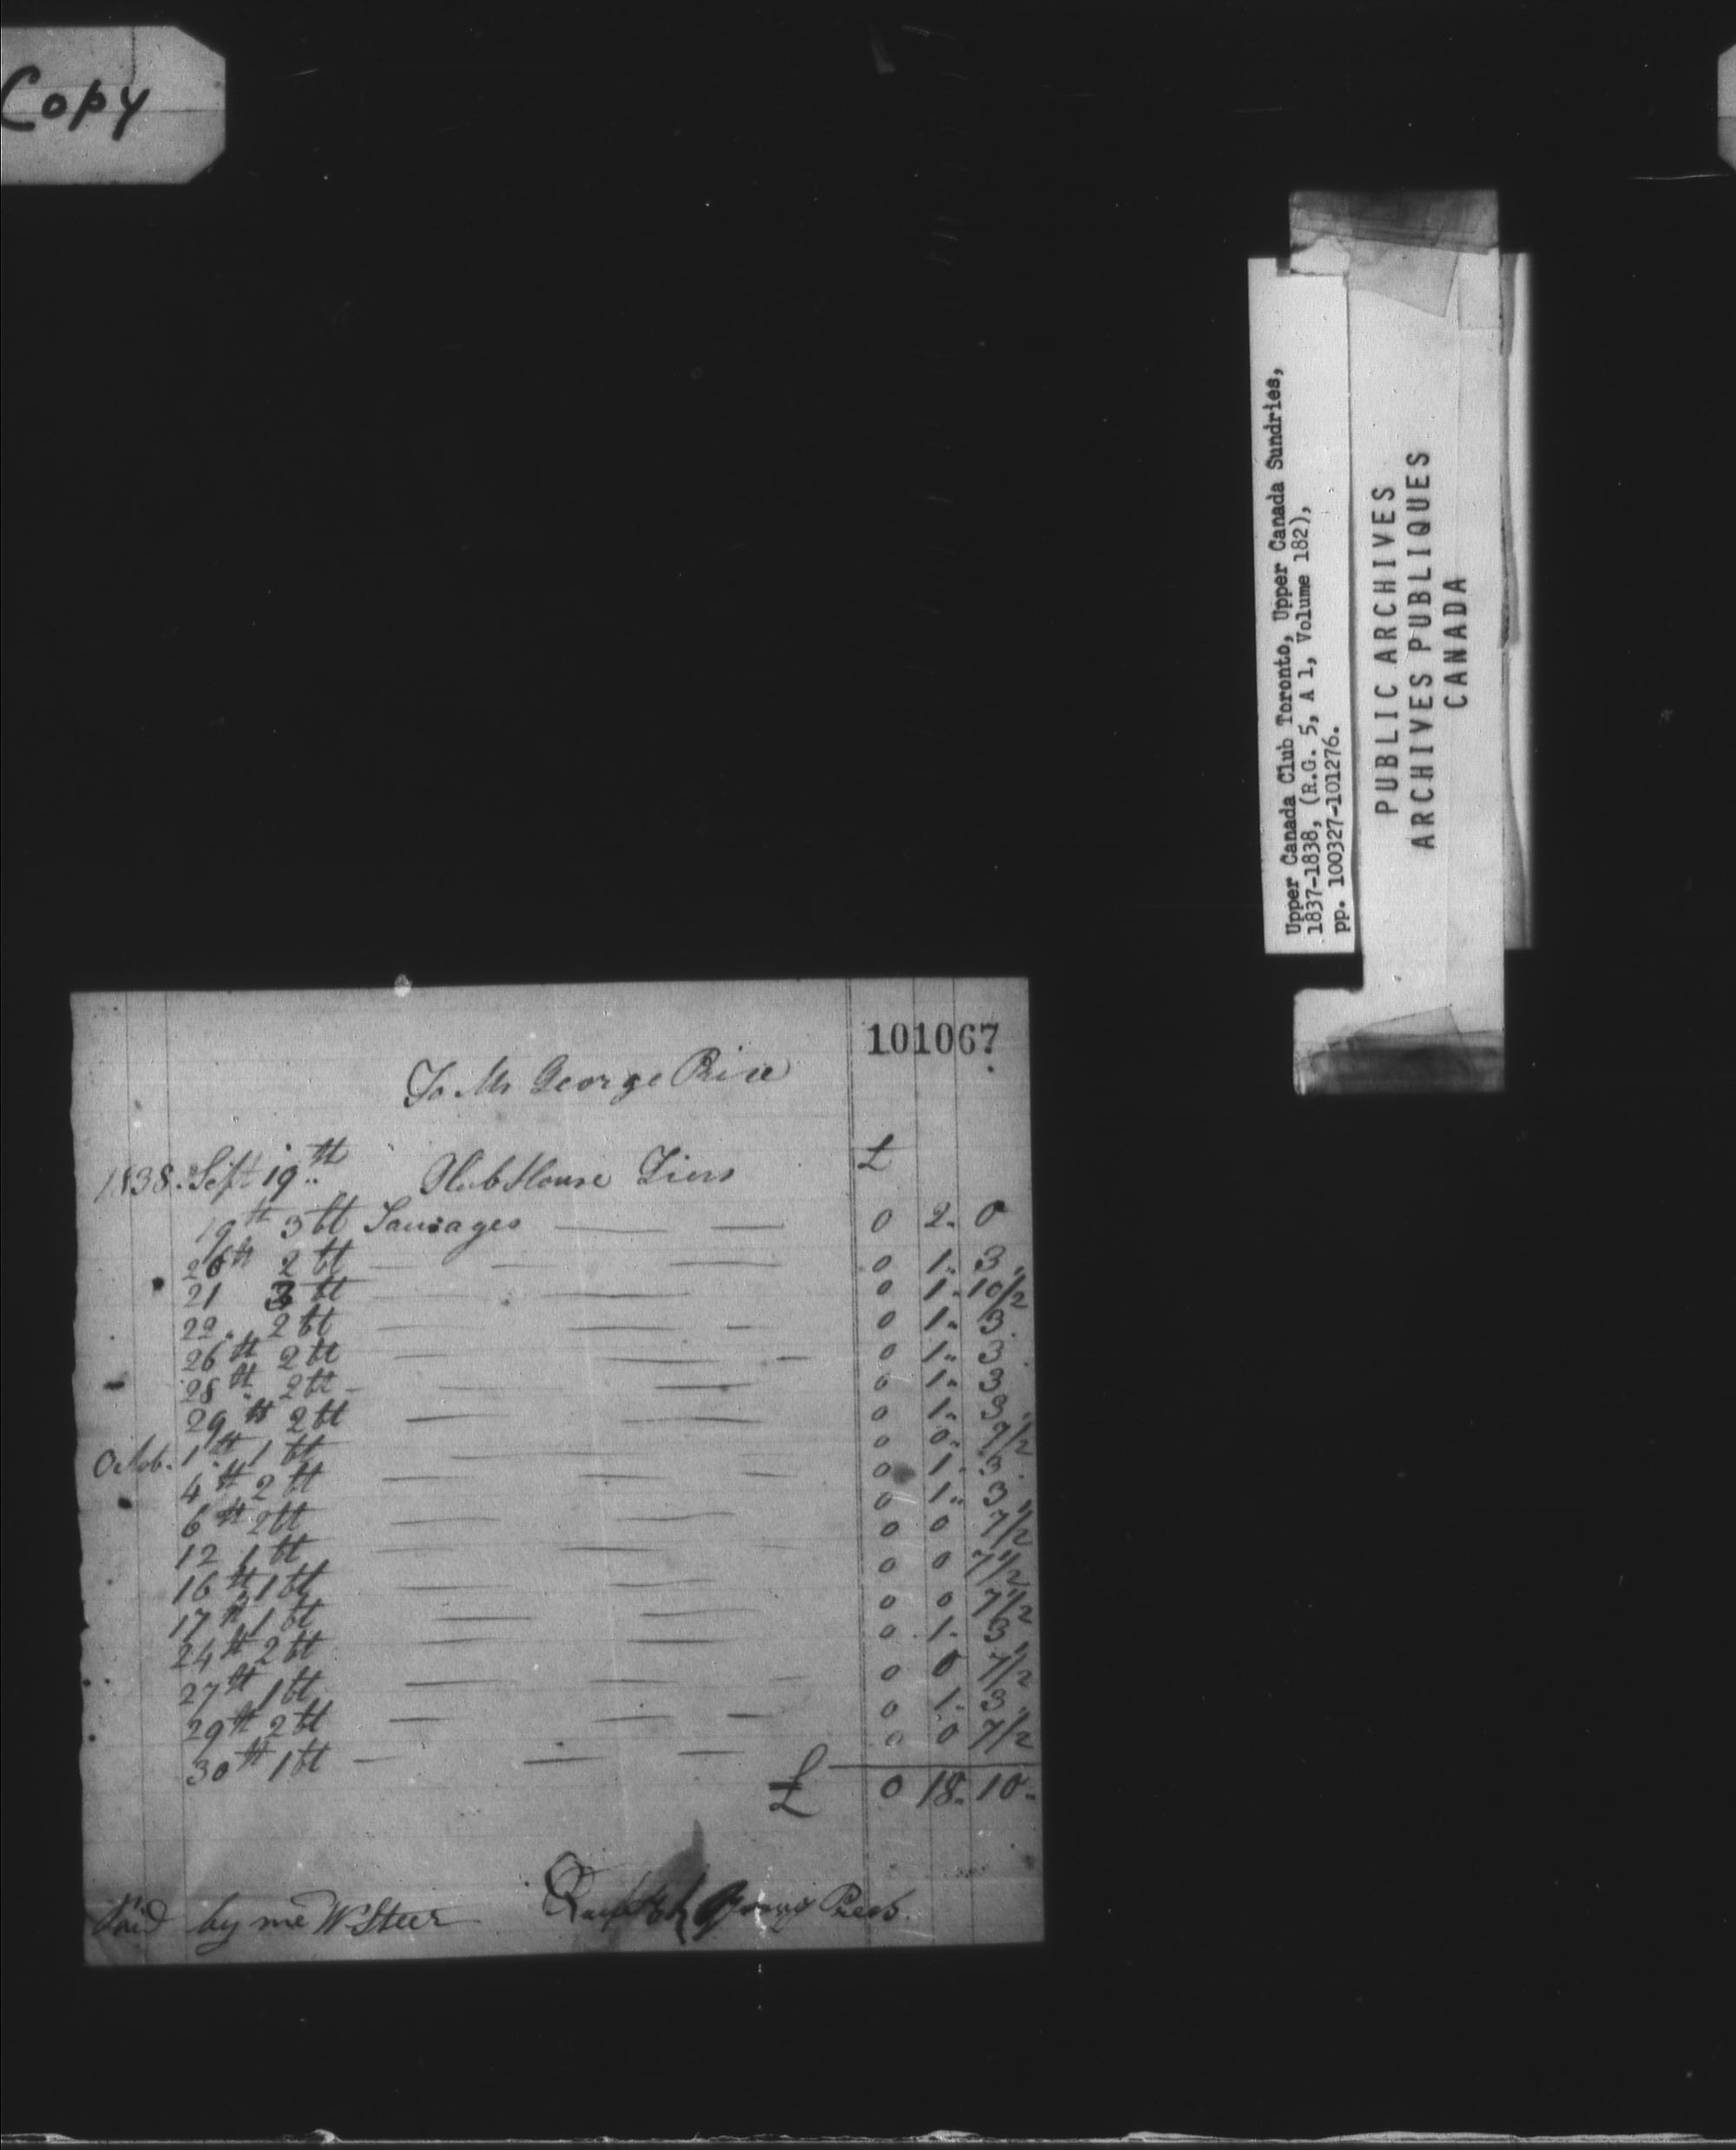 Copy
Upper Canada Club Toronto, Upper Canada Sundries,
1837-1838, (R.G. 5, A 1, Volume 182),
pp. 100327-101276.
PUBLIC ARCHIVES
ARCHIVES PUBLIQUES
CANADA
101067
To Mr George Rice
1838. Sept 19th Clubhouse £
19th 3 lt Sausages 0 2. 0
26th 2 lt 0 1.. 3
21 3 lt 0 1. 10 1/2
22. 2 lt 0 1.. 3.
26th 2 lt 0 1.. 3
28th 2 lt 0 1.. 3
29th 2 lt 0 1.. 3
Octob. 1th 1 lt 0 0.. 7 1/2
4th 2 lt 0 1. 3.
6th 2 lt 0 1.. 3
12 1 lt 0 0 7 1/2
16th 1 lt 0 0 7 1/2
17th 1 lt 0 0 7 1/2
24th 2 lt 0 1. 3
27th 1 lt 0 0 7 1/2
29th 2 lt 0 1. 3
30th 1 lt 0 0 7 1/2
£ 0 18. 10.
Paid by me W Steer